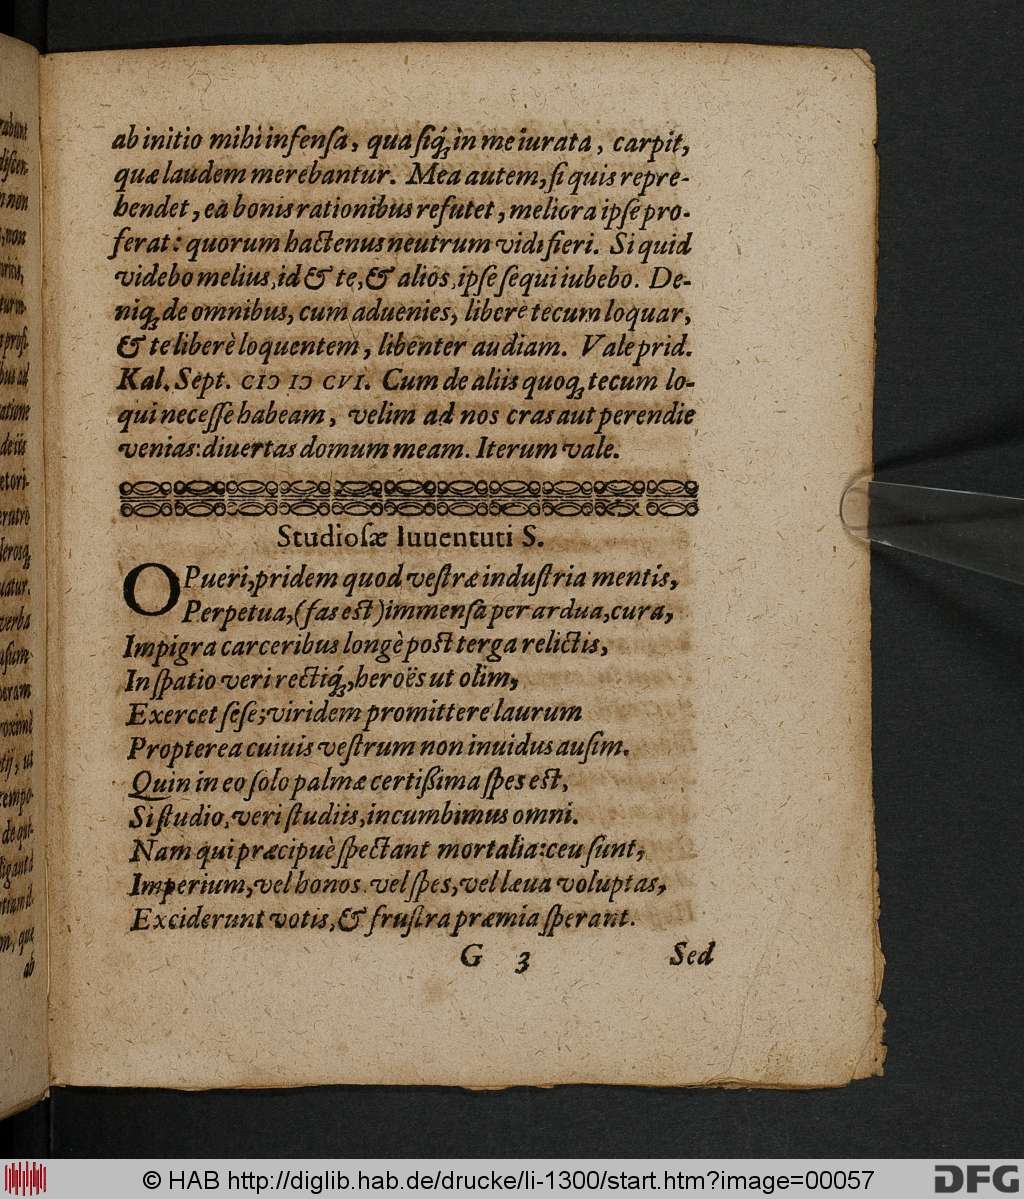 ab initio mihi infensa, quasiq́; in me iurata, carpit,
quæ laudem merebantur. Mea autem, si quis repre-
hendet, ea bonis rationibus refutet, meliora ipse pro-
ferat: quorum hactenus neutrum vidi fieri. Si quid
videbo melius, id & te, & alios, ipse sequi iubebo. De-
niq; de omnibus, cum aduenies, liberè tecum loquar,
& te liberè loquentem, libenter audiam. Vale prid.
Kal. Sept. CIↃ IↃ CVI. Cum de aliis quoq; tecum lo-
qui necesse habeam, velim ad nos cras aut perendie
venias: diuertas domum meam. Iterum vale.
Studiosæ Iuuentuti S.
O Pueri, pridem quod vestræ industria mentis,
Perpetua, (fas est) immensa per ardua, cura,
Impigra carceribus longè post terga relictis,
In spatio veri rectiq́;, heroës ut olim,
Exercet sese; viridem promittere laurum
Propterea cuiuis vestrum non inuidus ausim.
Quin in eo solo palmæ certißima spes est,
Si studio, veri studiis, incumbimus omni.
Nam qui præcipuè spectant mortalia: ceu sunt,
Imperium, vel honos, vel spes, vel læua voluptas,
Exciderunt votis, & frustra præmia sperant.
G 3 Sed
rabunt
discen-
n non
, non
turm-
bus ad
ratione
de iis
etori-
uatur.
verba
usum
peram
roximè
tij, ut
tempo-
de qui-
m, que
ab
© HAB http://diglib.hab.de/drucke/li-1300/start.htm?image=00057
DFG